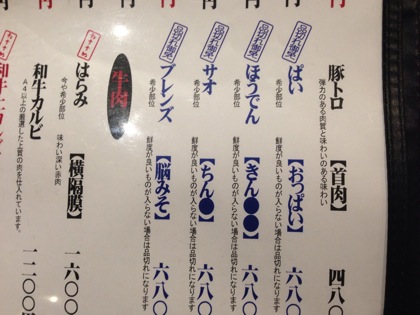 豚トロ 【首肉】 四八〇
弾力のある肉質と味わいのある味わい
品切れ御免
ぱい 【おっぱい】 六八〇
希少部位 鮮度が良いものが入らない場合は品切れになります
品切れ御免
ほうでん 【きん●●】 六八〇
希少部位 鮮度が良いものが入らない場合は品切れになります
品切れ御免
サオ 【ちん●】 六八〇
希少部位 鮮度が良いものが入らない場合は品切れになります
品切れ御免
ブレンズ 【脳みそ】 六八〇
希少部位 鮮度が良いものが入らない場合は品切れになります
牛肉
はらみ 【横隔膜】 一六〇〇
今や希少部位 味わい深い赤肉
おすすめ
和牛カルビ 一二〇〇
A4以上の厳選した上質の肉を仕入れています。
おすすめ